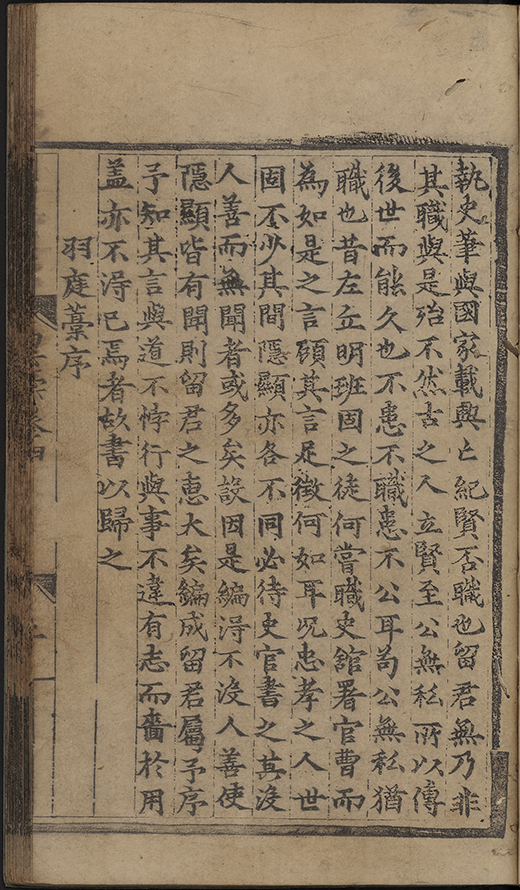 執史筆與國家載興亡紀賢否職也留君無乃非
其職與是殆不然古之人立賢至公無私所以傳
後世而能久也不患不職患不公耳苟公無私猶
職也昔左丘明班固之徒何嘗職史館署官曹而
為如是之言頋其言足徴何如耳况忠孝之人世
固不少其間隱顯亦各不同必待史官書之其沒
人善而無聞者或多矣設因是編淂不沒人善使
隱顯皆有聞則留君之惠大矣編成留君屬予序
予知其言與道不悖行與事不違有志而嗇於用
盖亦不淂已焉者故書以歸之
羽庭藁序